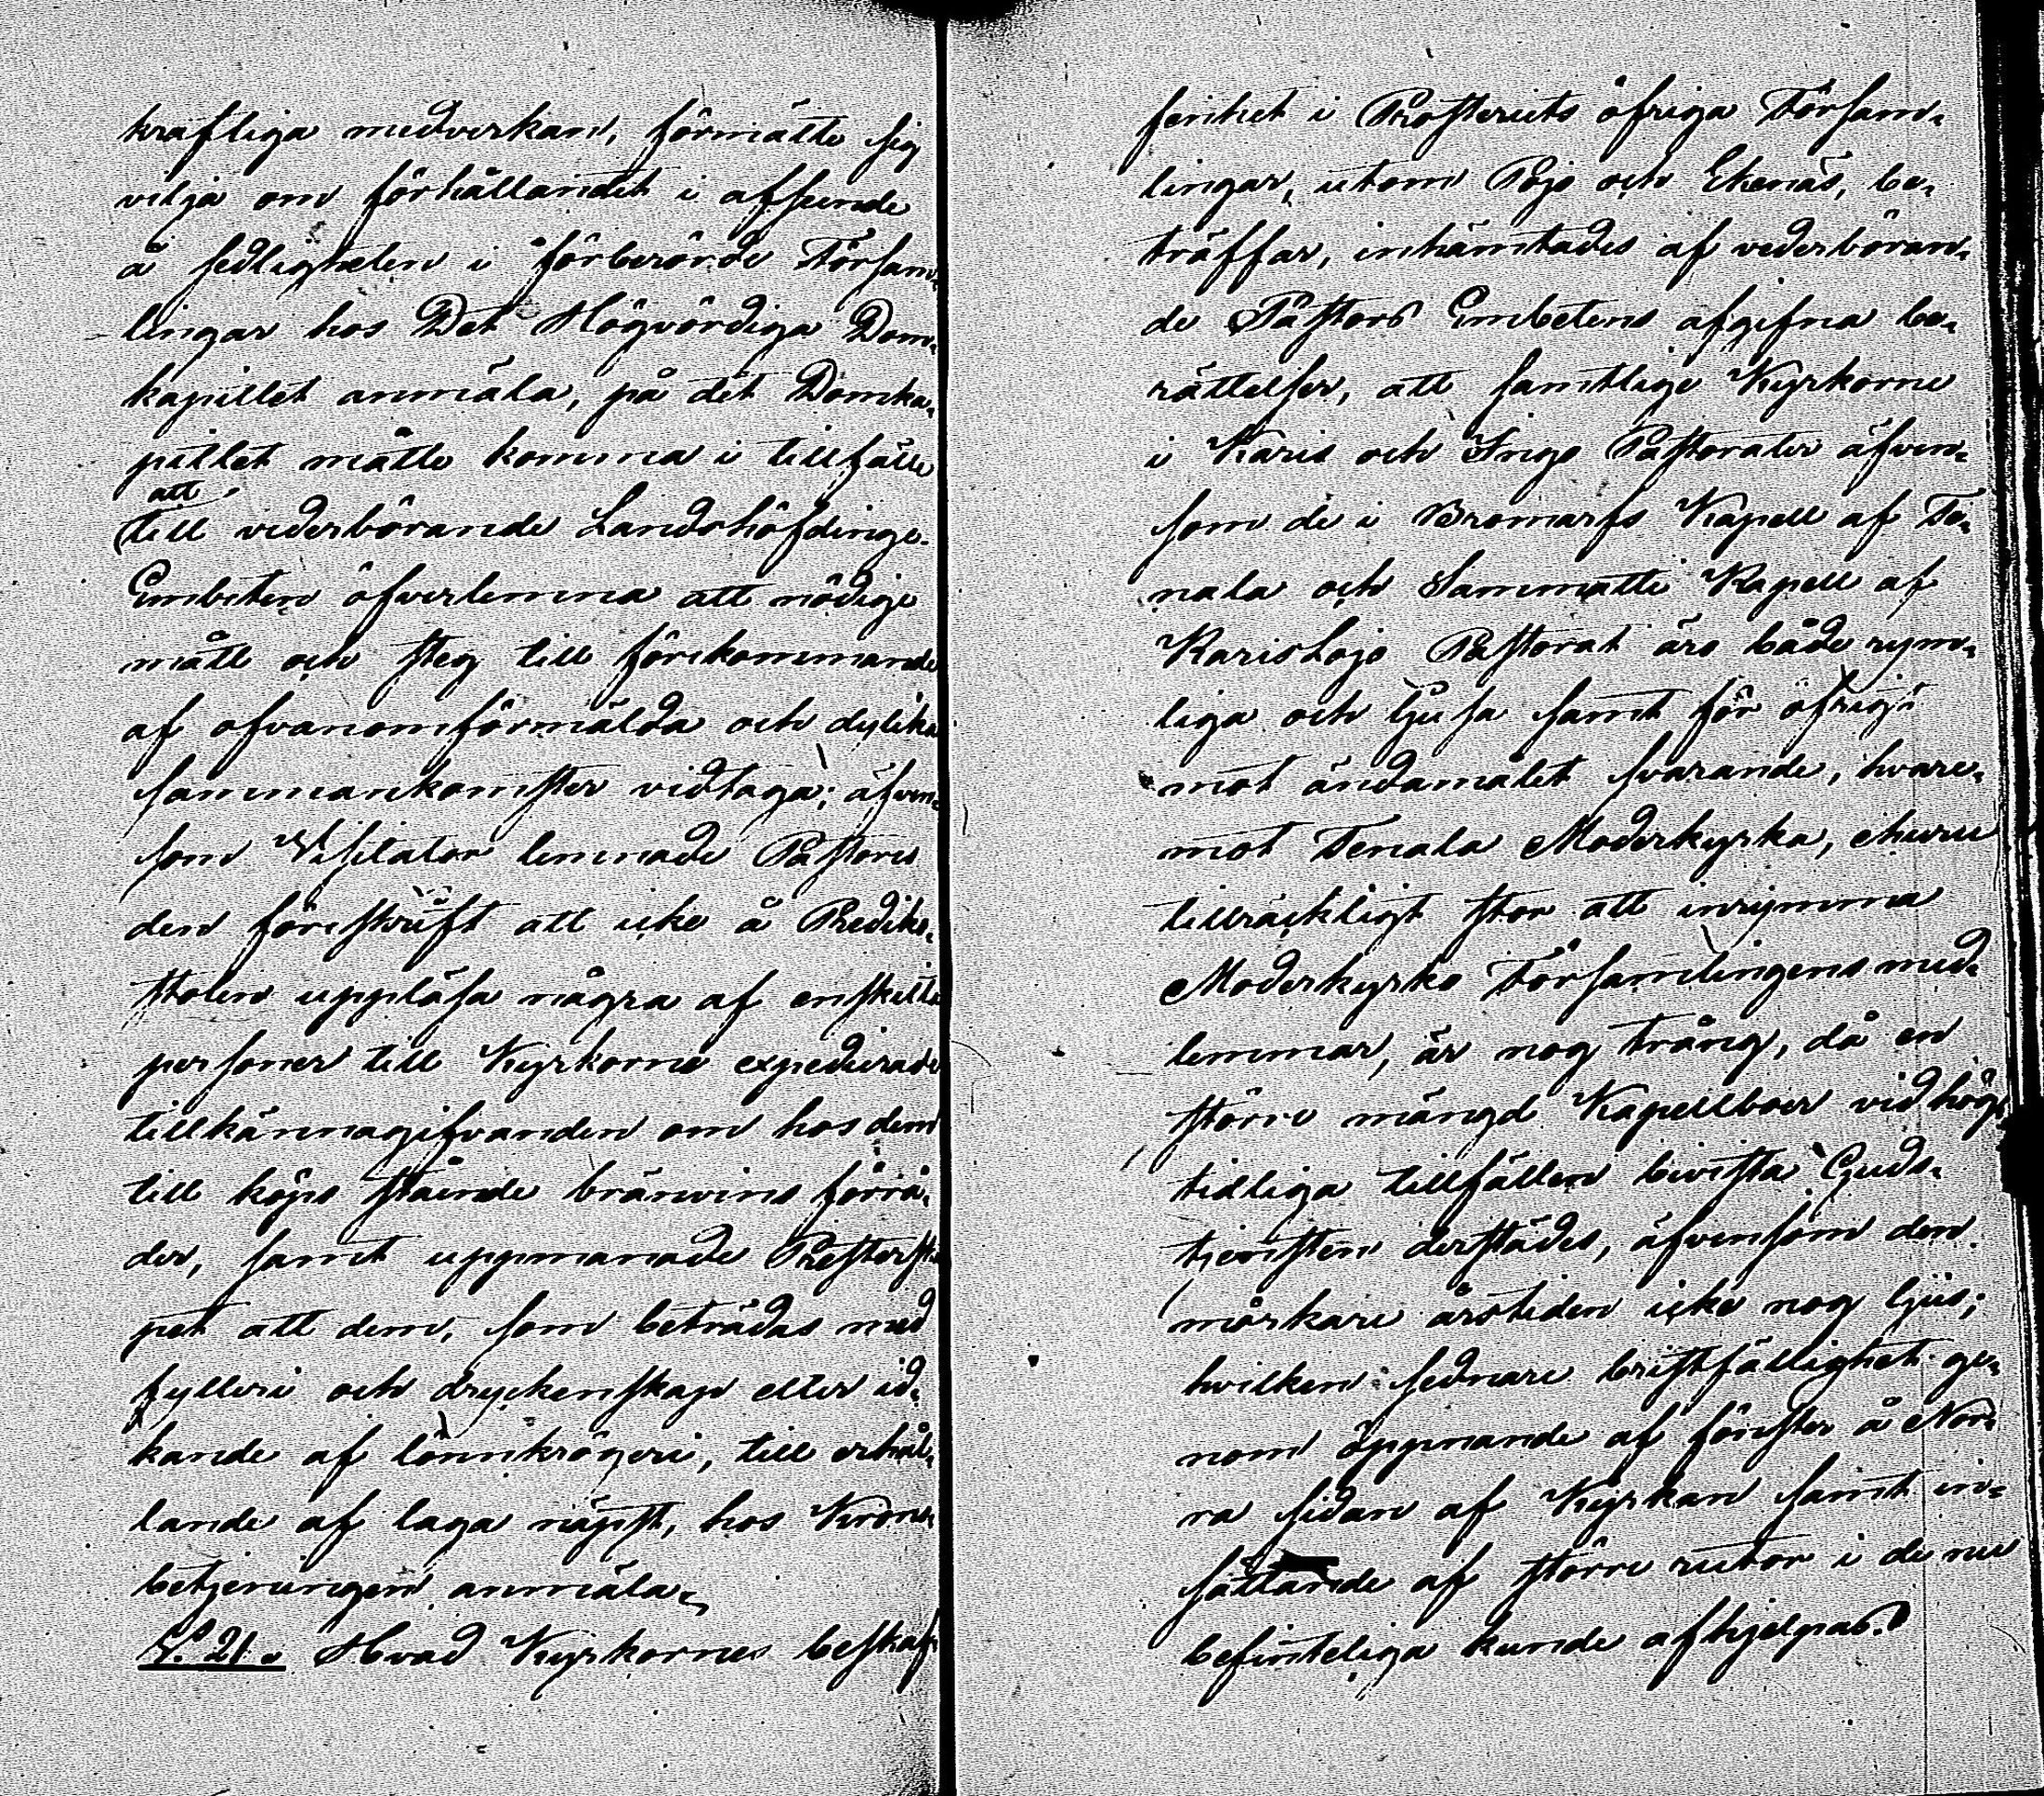 kraftliga medverkan, förmälte sig
vilja om förhållandet i afseende
å sedligheten i förberörde Försam-
lingar hos Det Högvördiga Dom-
kapitlet anmäla, på det Domka-
pitlet måtte komma i tillfälle
att
till vederbörande Landshöfdinge-
Embeten öfverlemna att nödige
mått och steg till förekommande
af ofvanomförmälda och dylika
sammankomster vidtaga; äfven-
som Visitator lemnade Pastores
den föreskrift att icke å Prediko-
stolen uppläsa några af enskilte
personer till Kyrkorne expedierade
tillkännagifvanden om hos dem
till köps stående bränvins förrå-
der, samt uppmanade Presterska-
pet att dem, som beträdas med
fylleri och dryckenskap eller id-
kande af lönnkrögeri, till erhål-
lande af laga näpst, hos Krono-
betjeningen anmäla.
§. 21. Hvad Kyrkornes beskaf-
fenhet i Prosteriets öfriga Försam-
lingar, utom Pojo och Ekenäs, be-
träffar, inhämtades af vederböran-
de Pastors Embetens afgifna be-
rättelser, att samtlige Kyrkorne
i Karis och Ingo Pastorater äfven-
som de i Bromarfs Kapell af Te-
nala och Sammatti Kapell af
KarisLojo Pastorat äro både rym-
liga och ljusa samt för öfrigt
mot ändamålet svarande, hvare-
mot Tenala Moderkyrka, ehuru
tillräckligt stor att inrymma
Moderkyrko Församlingens med-
lemmar, är nog trång, då en
större mängd Kapellboer vid hög-
tidliga tillfällen bevista Guds-
tjensten derstädes, äfvensom den
mörkare årstiden icke nog ljus;
hvilken sednare bristfällighet ge-
nom öppnande af fönster å Nor-
ra sidan af Kyrkan samt in-
sättande af större rutor i de nu
befinteliga kunde afhjelpas.